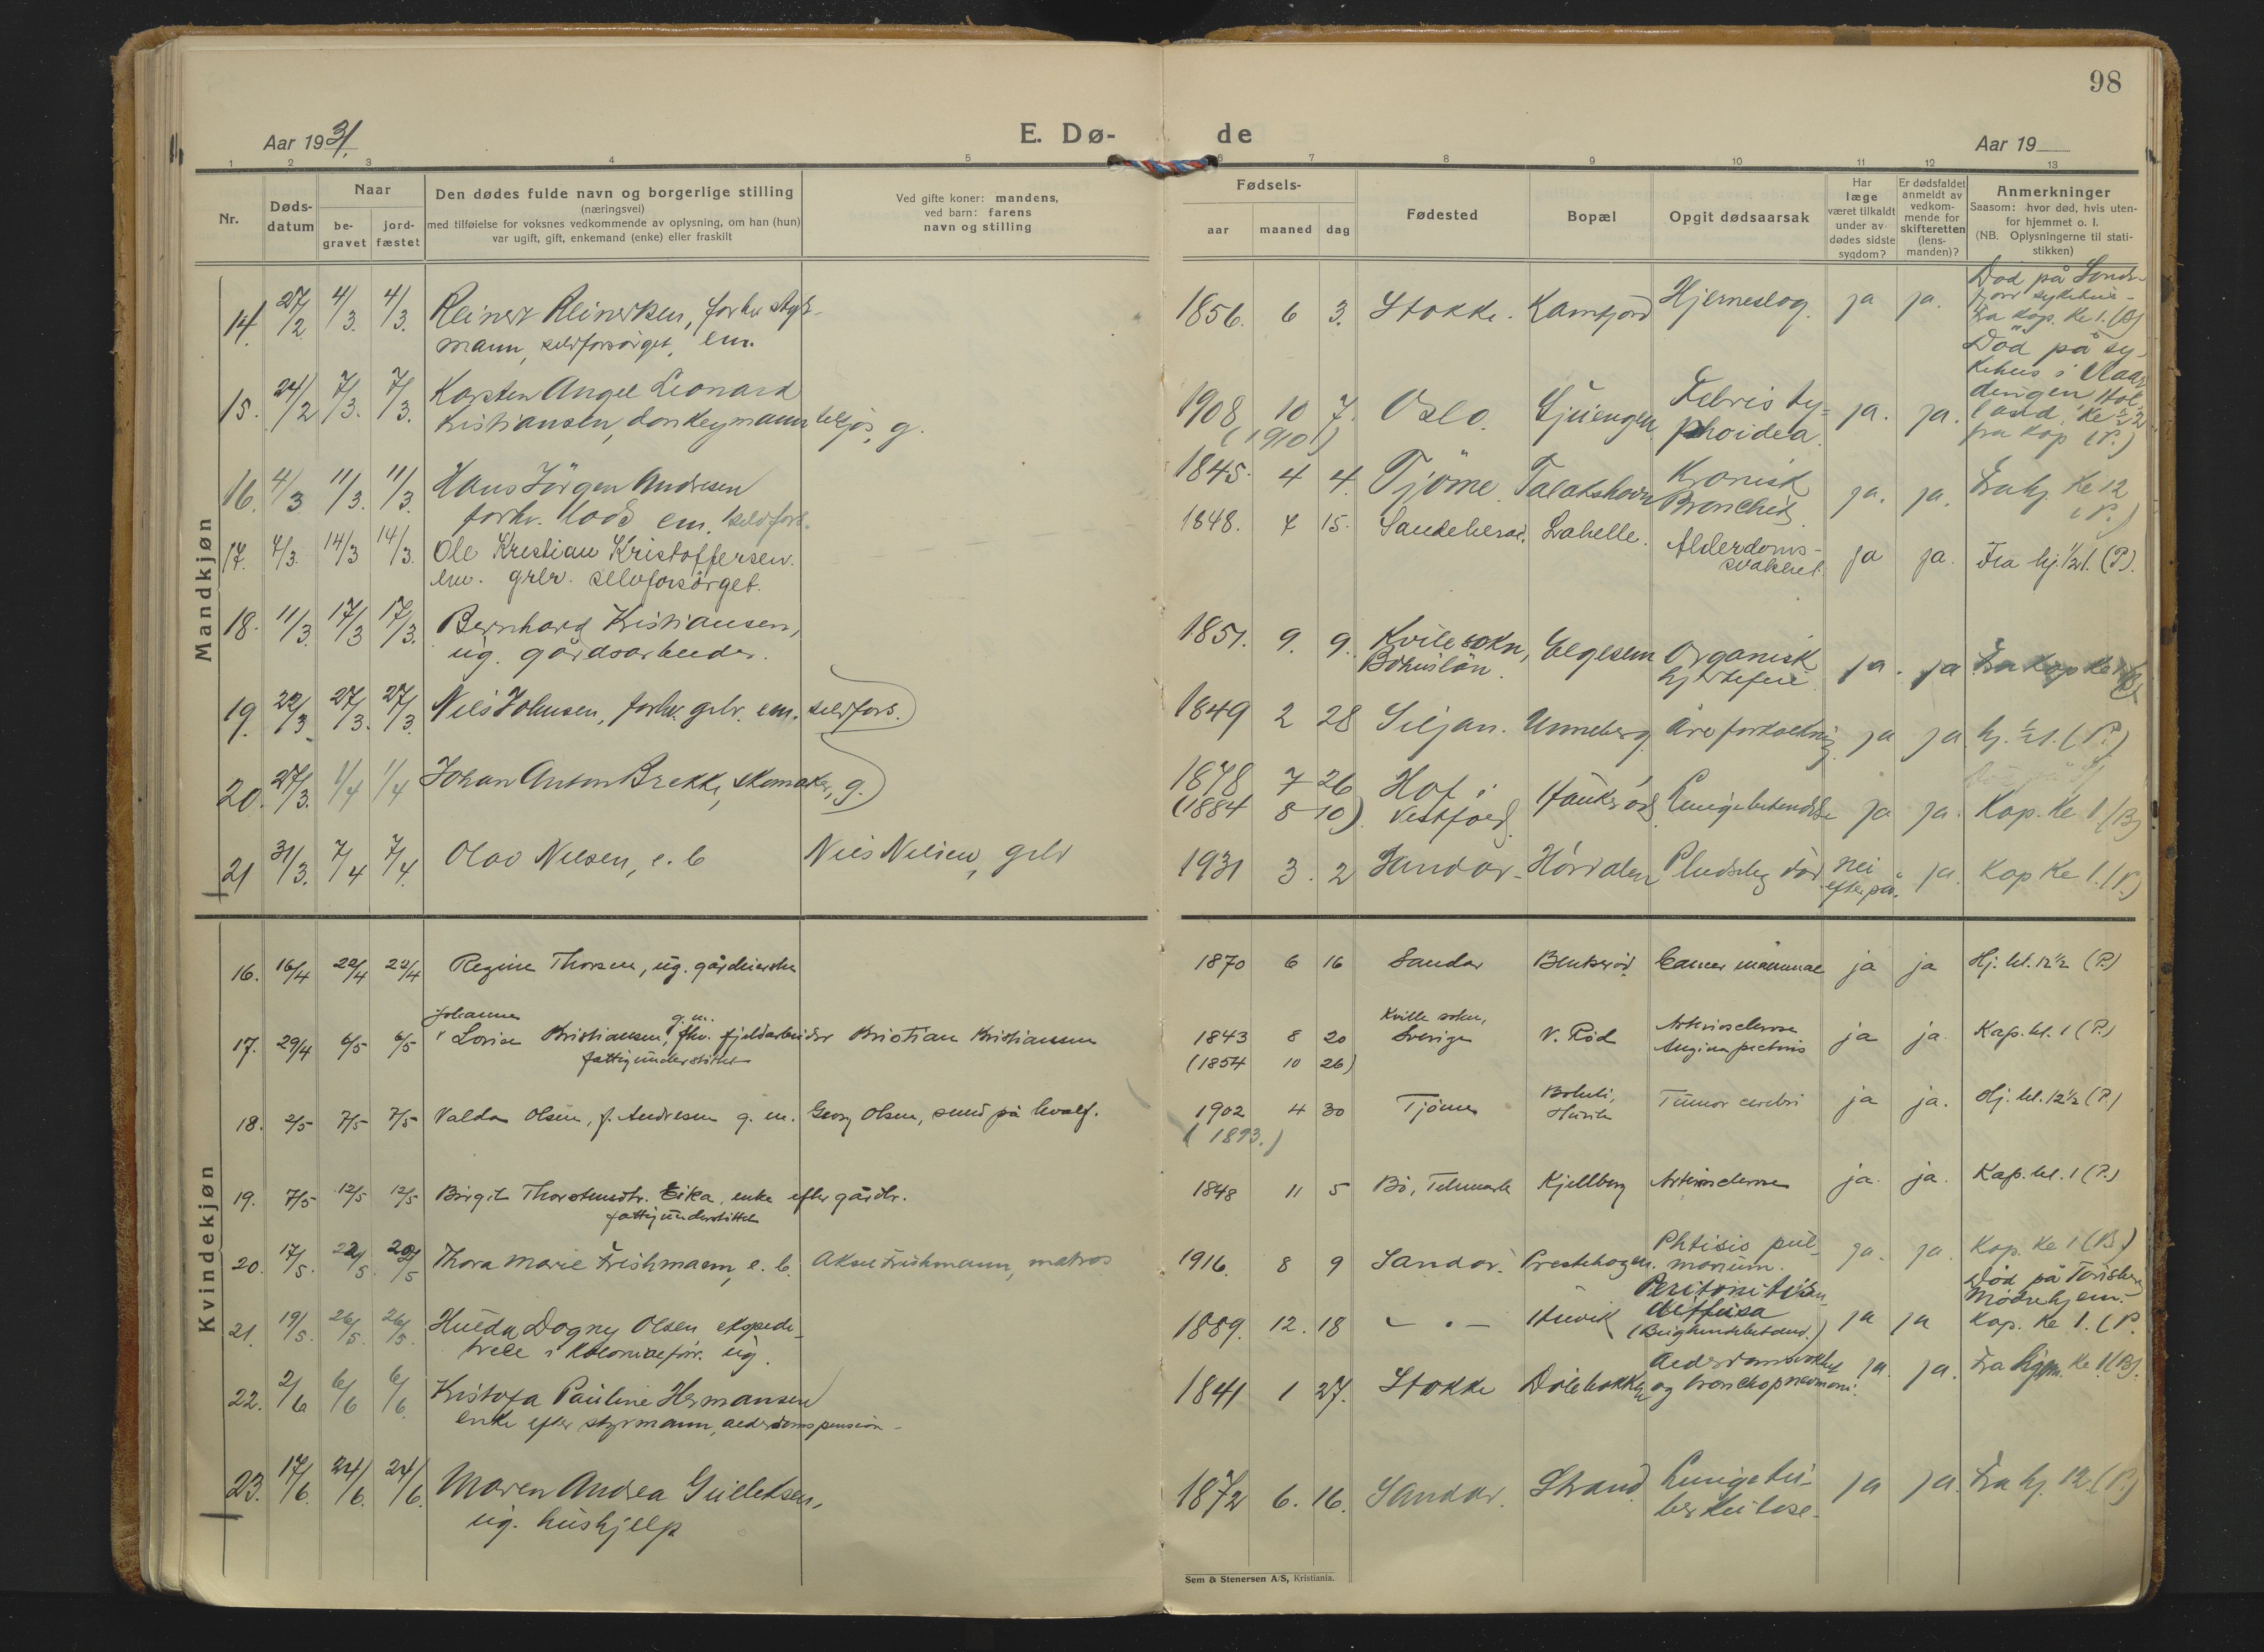 98
Aar 1931.
E. Dø- de
Aar 19
1 2 3 4 5 6 7 8 9 10 11 12 13
Nr.
Døds-
datum
Naar
be-
gravet
jord-
fæstet
Den dødes fulde navn og borgerlige stilling
(næringsvei)
med tilføielse for voksnes vedkommende av oplysning, om han (hun)
var ugift, gift, enkemand (enke) eller fraskilt
Ved gifte koner: mandens,
ved barn: farens
navn og stilling
Fødsels-
aar maaned dag
Fødested
Bopæl
Opgit dødsaarsak
Har
læge
været tilkaldt
under av-
dødes sidste
sygdom?
Er dødsfaldet
anmeldt av
vedkom-
mende for
skifteretten
(lens-
manden)?
Anmerkninger
Saasom: hvor død, hvis uten-
for hjemmet o. l.
(NB. Oplysningerne til stati-
stikken)
Mandkjøn
14. 27/2 4/3. 4/3. Reinert Reinertsen, forhv. styr-
mann, selvforsørget, em.
1856. 6 3. Stokke. Kamfjord Hjerneslag. ja ja.
Død på Sande-
fjord sykehus -
Fra kap. kl 1. (B)
15. 24/2 7/3. 7/3. Karsten Angel Leonard
Kristiansen, donkeymann tilsjøs, g.
1908 10 7. Oslo. Gjuengen Febris ty-
(1910) phoidea. ja. ja.
Død på sy-
kehus i Vlaar
dingen Hol-
land. Kl 1/2 2
fra kap (P.)
16. 4/3 11/3. 11/3. Hans Jörgen Andresen
forhv. lods em. selvfors.
1845. 4 4. Tjöme. Talakshavn Kronisk
Bronchit. ja. ja. Fra hj. kl 12
(P.)
17. 7/3. 14/3 14/3. Ole Kristian Kristoffersen.
em. grbr. selvforsörget.
1848. 7 15. Sandeherad. Lahelle. Alderdoms-
svakhet. ja ja. Fra hj. 1/2 1. (P).
18. 11/3. 17/3 17/3. Bernhard Kristiansen,
ug. gårdsarbeider.
1851. 9. 9. Kvile sokn,
Bohuslän. Elgesem Organisk
hjertefeil ja. ja Fra kap kl
19. 22/3 27/3. 27/3. Nils Johnsen, forhv. grbr. em. selvfors.
1849 2 28 Siljan. Unneberg. Åreforkalkning ja ja hj. 1/2 1. (P.)
20. 27/3. 1/4 1/4 Johan Anton Brekke, skomaker, g.
1878 7 26 Hof i
(1884 8 10) Vestfold. Haukeröd Lungebetendelse ja ja. Kap. kl 1 (B)
21 31/3. 7/4 7/4. Olav Nilsen, e. b Nils Nilsen, grbr
1931 3. 2 Sandar - Hårdalen Pludselig död nei
efterpå. ja. Kap kl 1. (P.)
Kvindekjøn
16. 16/4 22/4 22/4 Regine Thorsen, ug. gårdeierske
1870 6 16 Sandar Bentserød. Cancer mammae ja ja Hj. kl. 12 1/2 (P.)
17. 29/4 6/5 6/5 Johanne
Lovise Kristiansen, g.m. fhv. fjeldarbeider Kristian Kristiansen
fattigunderstøttet
1843 8 20 Kville sokn,
Sverige V. Rød Arteriosclerose
(1854 10 26) Angina pectoris ja ja. Kap. kl. 1 (P.)
18. 2/5 7/5 7/5 Valda Olsen, f. Andresen g. m. Georg Olsen, smed på hvalf.
1902 4 30 Tjöme
(1893.) Huvik Tumor cerebri ja ja. Hj. kl. 12 1/2 (P.)
19. 7/5 12/5 12/5 Birgit Thorstensdtr. Eika, enke efter gårdbr.
fattigunderstöttet
1848 11 5 Bö, Telemark Kjellberg Arteriosclerose ja. ja. Kap. kl. 1 (P.)
20. 17/5. 22/5. 22/5 Thora Marie Frishmann, e. b. Aksel Frishmann, matros
1916. 8 9 Sandar. Prestehagen. Phtisis pul-
monum. ja. ja. Kap. kl 1 (B.)
21. 19/5. 26/5. 26/5. Hulda Dagny Olsen ekspedi-
trice i kolonialforr. ug.
1889. 12. 18 - " - Huvik Peritonitis
diffusa
(Bughindebetend.) ja ja
Død på
Mödrehjem.
Kap. kl 1. (P.
22. 2/6 6/6 6/6. Kristofa Pauline Hermansen
enke efter styrmann, alderdomspension -
1841 1 27. Stokke Dölebakken Alderdomssvakhet
og bronchopneumoni. ja. ja. Fra kl 1 (B).
23. 17/6. 24/6. 24/6. Maren Andrea Gulliksen,
ug. hushjelp
1872 6. 16. Sandar. Strand. Lungetu-
berkulose. ja ja. Fra hj. 12. (P.)
Sem & Stenersen A/S, Kristiania.